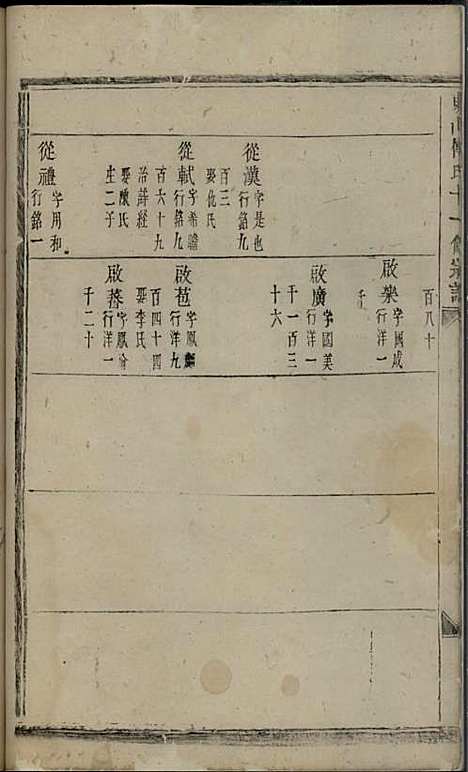 從漢
字是也
行銘九
百三
娶仇氏
從軾
字希瞻
行銘九
百六十九
治詩經
娶釀氏
生二子
從禮
字用和
行銘一
百八十
啟樂
字國成
行洋一
千
啟廣
字國美
行洋一
千一百三
十六
啟苞
行洋九
百四十四
娶李氏
啟
行洋一
千二十